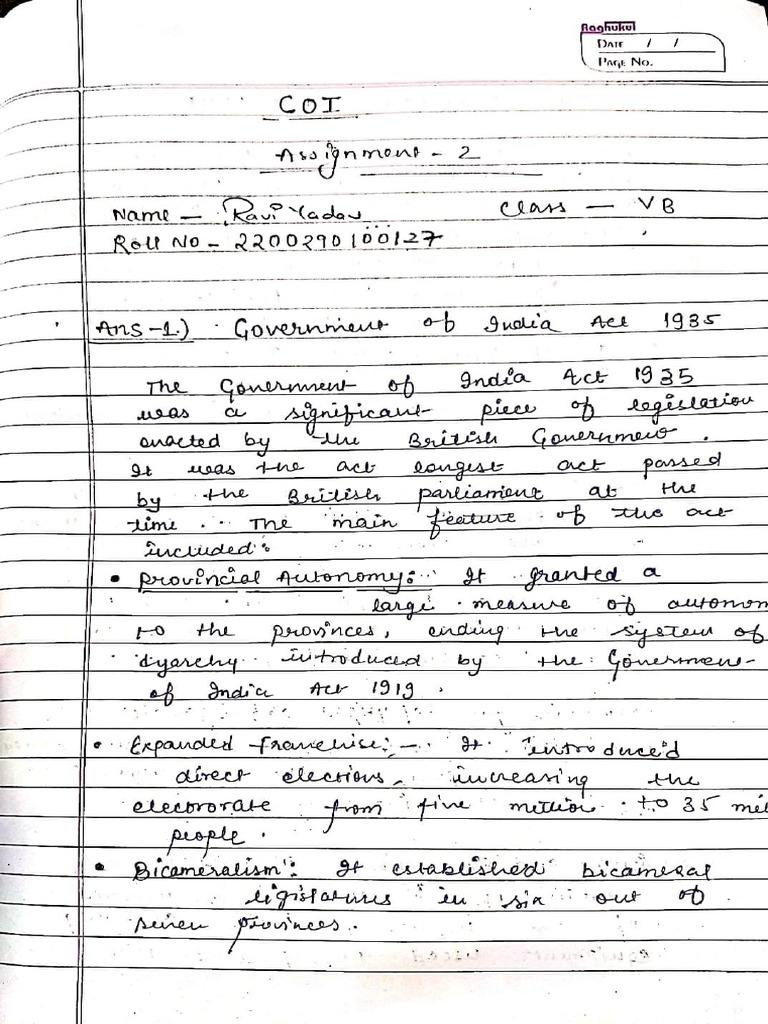 Raghukul
DATE / /
PAGE NO.
COI
Assignment - 2
Name - Ravi Yadav Class - V B
Roll No - 2200290100127
Ans-1.) Government of India Act 1935
The Government of India Act 1935
was a significant piece of legislation
enacted by the British Government.
It was the act longest act passed
by the British parliament at the
time. The main feature of the act
included:
• Provincial Autonomy: It granted a
large measure of autonom
to the provinces, ending the system of
dyarchy introduced by the Government
of India Act 1919.
• Expanded franchise:- It introduced
direct elections, increasing the
elecororate from five million to 35 mil
people.
• Bicameralism: It established bicameral
legislatures in six out of
seven provinces.